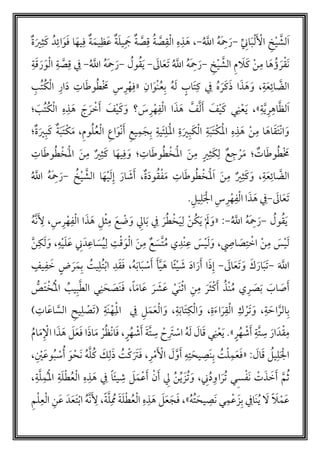 الشَّيْخِ الْأَلْبَانِيِّ -رَحِمَهُ اللهُ-، هَذِهِ الْقِصَّةُ قِصَّةٌ جَلِيلَةٌ عَظِيمَةٌ فِيهَا فَوَائِدُ كَثِيرَةٌ
نَقْرَؤُهَا مِنْ كَلَامِ الشَّيْخِ -رَحِمَهُ اللهُ تَعَالَى- يَقُولُ -رَحِمَهُ اللهُ- فِي قِصَّةِ الْوَرَقَةِ
الضَّائِعَةِ، وَهَذَا ذَكَرَهُ فِي كِتَابٍ لَهُ بِعُنْوَانِ «فِهْرِسِ مَخْطُوطَاتِ دَارِ الْكُتُبِ
الظَّاهِرِيَّةِ»، يَعْنِي كَيْفَ أَلَّفَ هَذَا الْفِهْرِسَ؟ وَكَيْفَ أَخْرَجَ هَذِهِ الْكُتُبَ؛
وَانْتَقَاهَا مِنْ هَذِهِ الْمَكْتَبَةِ الْكَبِيرَةِ الْمَلِيئَةِ بِجَمِيعِ أَنْوَاعِ الْعُلُومِ، مَكْتَبَةٌ كَبِيرَةٌ؛
مَخْطُوطَاتٌ؛ مَرْجِعٌ لِكَثِيرٍ مِنَ الْمَخْطُوطَاتِ؛ وَفِيهَا كَثِيرٌ مِنَ الْمَخْطُوطَاتِ
الضَّائِعَةِ، وَكَثِيرٌ مِنَ الْمَخْطُوطَاتِ مَفْقُودَةٌ، أَشَارَ إِلَيْهَا الشَّيْخُ -رَحِمَهُ اللهُ
تَعَالَى- فِي هَذَا الْفِهْرِسِ الْجَلِيلِ.
يَقُولُ -رَحِمَهُ اللهُ-: «وَلَمْ يَكُنْ لِيَخْطُرَ فِي بَالِي وَضْعُ مِثْلِ هَذَا الْفِهْرِسِ، لِأَنَّهُ
لَيْسَ مِنَ اخْتِصَاصِي، وَلَيْسَ عِنْدِي مُتَّسَعٌ مِنَ الْوَقْتِ لِيُسَاعِدَنِي عَلَيْهِ، وَلَكِنَّ
اللهَ -تَبَارَكَ وَتَعَالَى- إِذَا أَرَادَ شَيْئًا هَيَّأَ أَسْبَابَهُ، فَقَدِ ابْتُلِيتُ بِمَرَضٍ خَفِيفٍ
أَصَابَ بَصَرِي مُنْذُ أَكْثَرَ مِنَ اثْنَيْ عَشَرَ عَامًا، فَنَصَحَنِي الطَّبِيبُ الْمُخْتَصُّ
بِالرَّاحَةِ، وَتَرْكِ الْقِرَاءَةِ، وَالْكِتَابَةِ، وَالْعَمَلِ فِي الْمِهْنَةِ (تَصْلِيحِ السَّاعَاتِ)
مِقْدَارَ سِتَّةِ أَشْهُرٍ». يَعْنِي قَالَ لَهُ اسْتَرِحْ سِتَّةَ أَشْهُرٍ، فَانْظُرْ مَاذَا فَعَلَ هَذَا الْإِمَامُ
الْجَلِيلُ قَالَ: «فَعَمِلْتُ بِنَصِيحَتِهِ أَوَّلَ الْأَمْرِ، فَتَرَكْتُ ذَلِكَ كُلَّهُ نَحْوَ أُسْبُوعَيْنِ،
ثُمَّ أَخَذَتْ نَفْسِي تُرَاوِدُنِي، وَتُزَيِّنُ لِي أَنْ أَعْمَلَ شَيْئًا فِي هَذِهِ الْعُطْلَةِ الْمُمِلَّةِ،
عَمَلًا لَا يُنَافِي بِزَعْمِي نَصِيحَتَهُ»، فَجَعَلَ هَذِهِ الْعُطْلَةَ مُمِلَّةً، لِأَنَّهُ ابْتَعَدَ عَنِ الْعِلْمِ